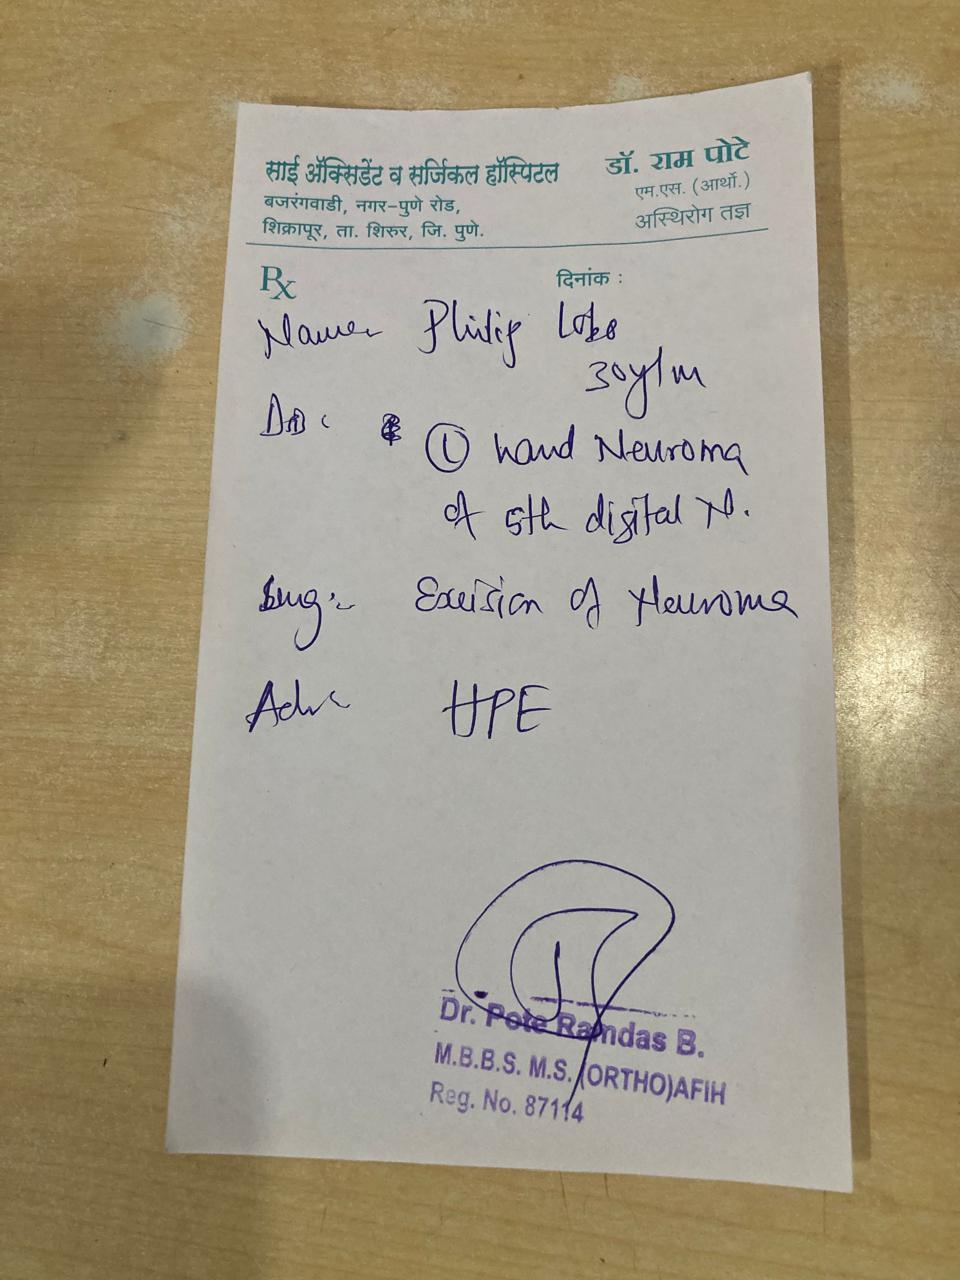 साई ॲक्सिडेंट व सर्जिकल हॉस्पिटल
बजरंगवाडी, नगर-पुणे रोड,
शिक्रापूर, ता. शिरुर, जि. पुणे.
डॉ. राम पोटे
एम.एस. (आर्थो.)
अस्थिरोग तज्ञ
Rx
दिनांक :
Name:- Philip Lobo
30y/m
(L) hand Neuroma
of 5th digital N.
Excision of Neuroma
Adv:- HPE
Dr. Pote Ramdas B.
M.B.B.S. M.S. (ORTHO)AFIH
Reg. No. 87114